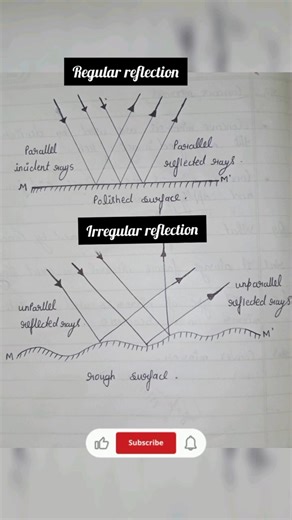 Regular reflection
Parallel
incident rays
Parallel
reflected rays.
M
M'
Polished surface.
Irregular reflection
unparllel
reflected rays
unparallel
reflected rays
M
M'
rough surface.
Subscribe